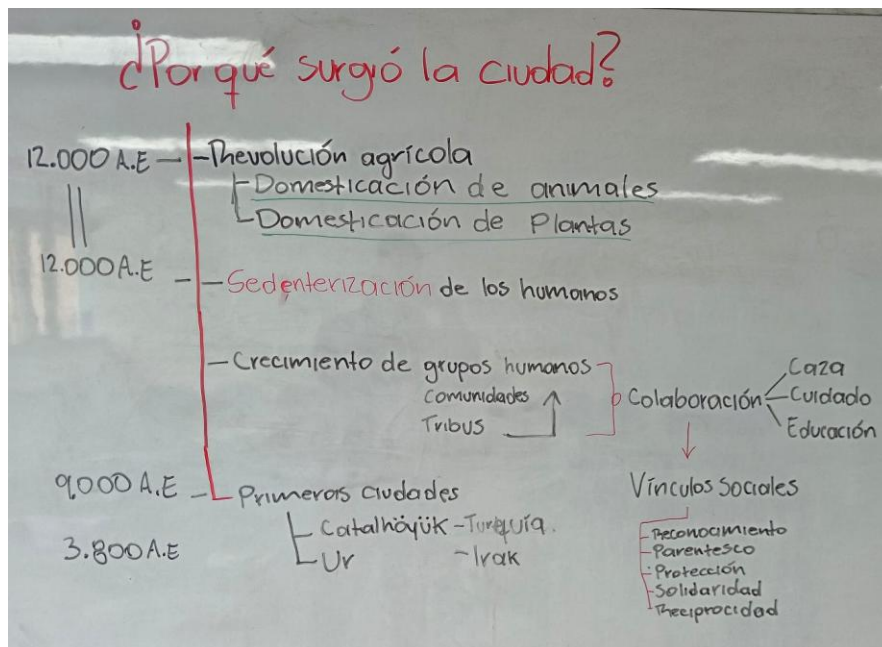 ¿Por qué surgió la ciudad?
12.000 A.E - - Revolución agrícola
- Domesticación de animales
- Domesticación de Plantas
12.000 A.E - - Sedenterización de los humanos
- Crecimiento de grupos humanos
Comunidades
Tribus
Colaboración
Caza
Cuidado
Educación
Vínculos Sociales
- Reconocimiento
- Parentesco
- Protección
- Solidaridad
- Reciprocidad
9.000 A.E - Primeras ciudades
Catalhöyük - Turquía.
3.800 A.E
Ur - Irak